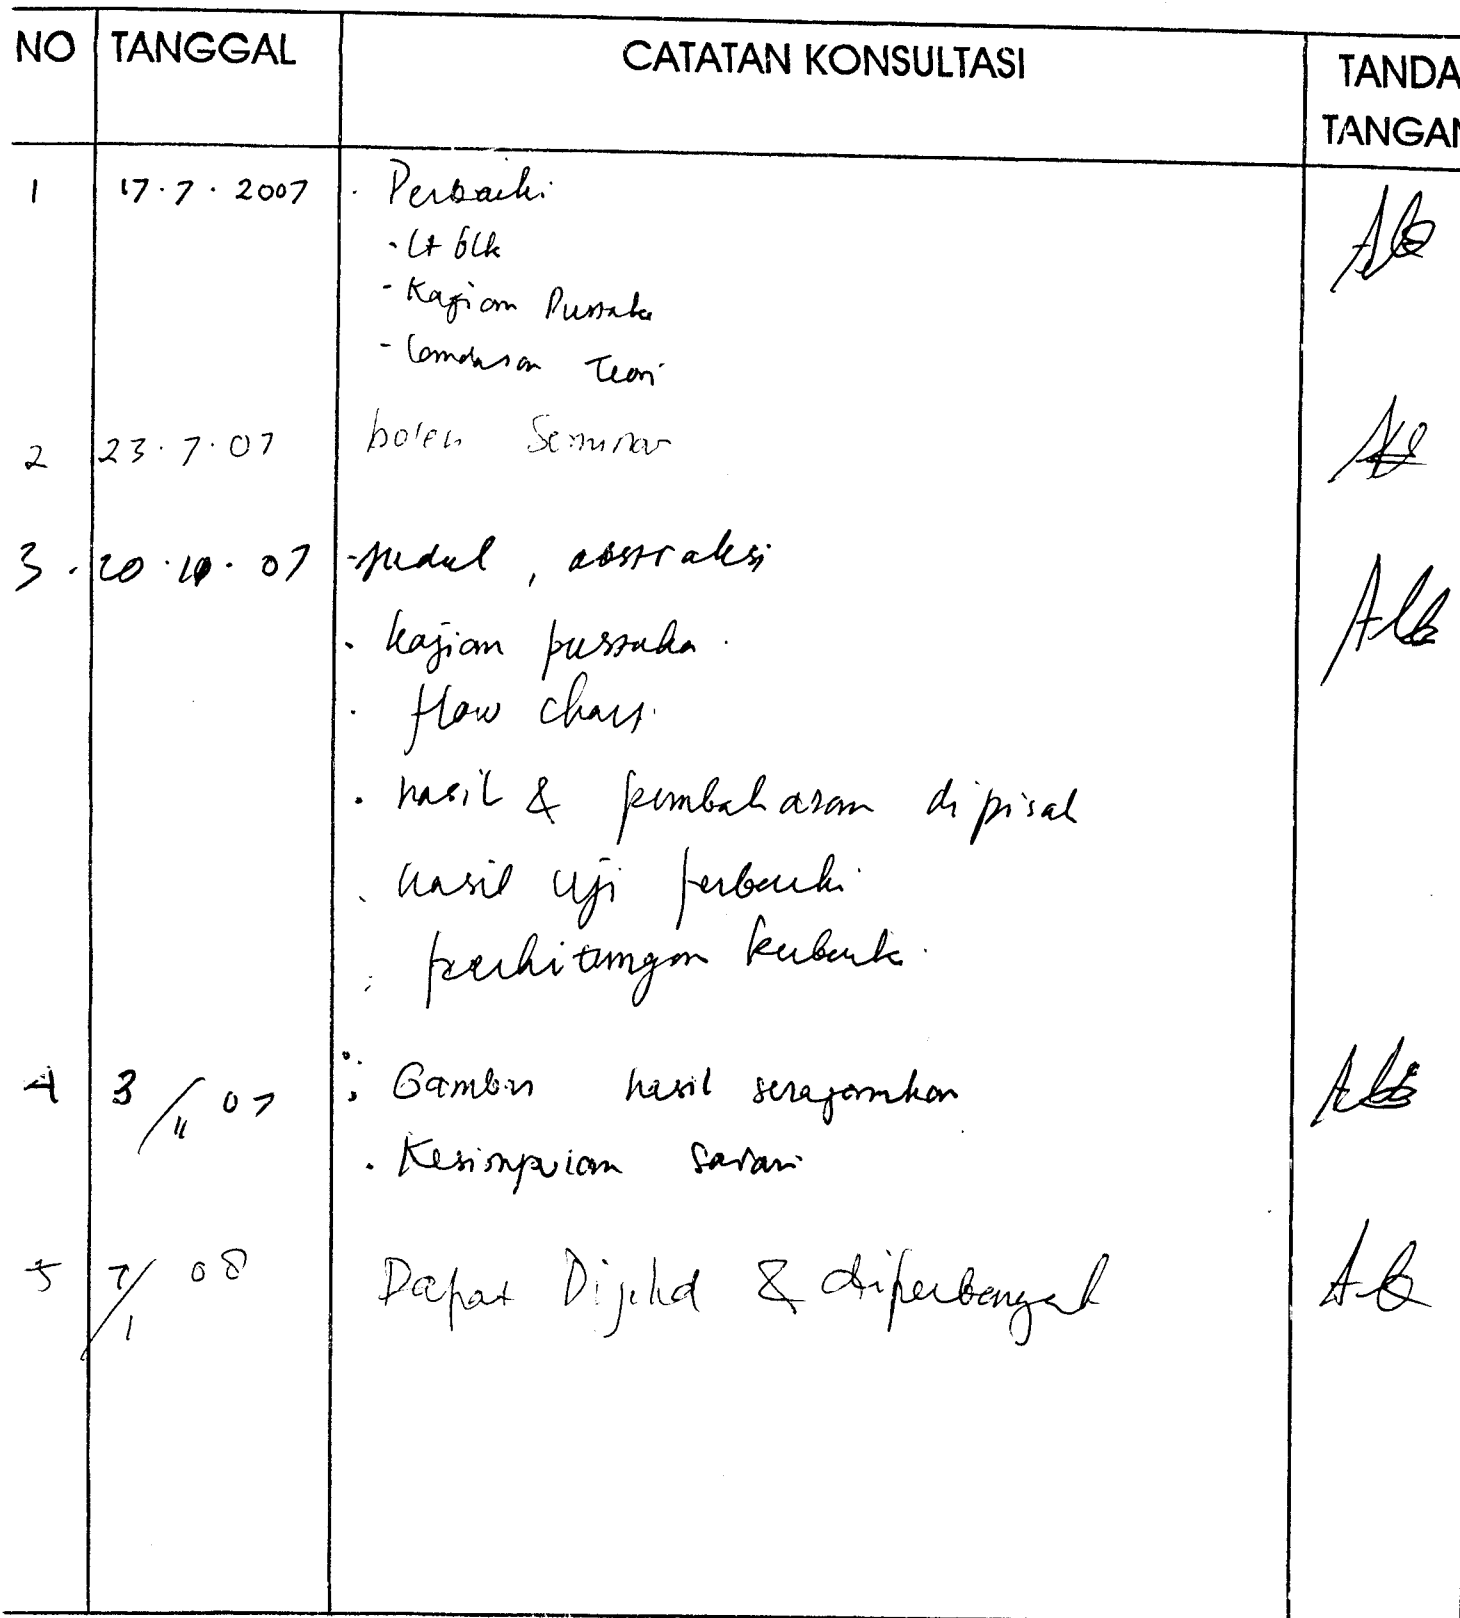 NO TANGGAL CATATAN KONSULTASI TANDA TANGAN
1 17.7.2007 . Perbaiki
- Lt blk
- Kajian Pustaka
- Landasan Teori
2 23.7.07 boleh Seminar
3. 20.10.07 - Judul, abstraksi
. kajian pustaka.
. flow chart.
. hasil & pembahasan dipisah
. hasil uji perbaiki
. perhitungan
4 3/11 07 . Gambar hasil seragamkan
. Kesimpulan saran
5 7/1 08 Dapat Dijilid & diperbanyak